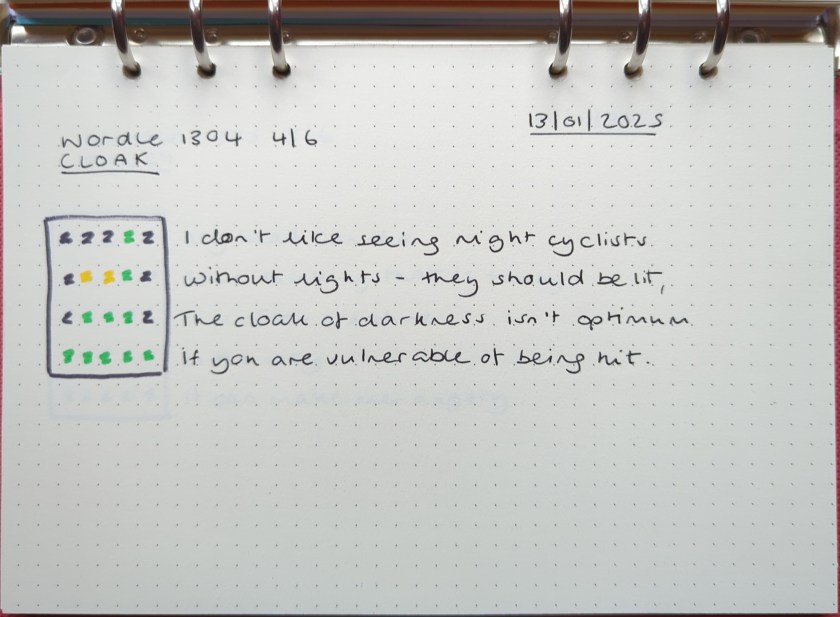 13/01/2025
Wordle 1304 4/6
CLOAK
I don't like seeing night cyclists
without lights - they should be lit,
The cloak of darkness isn't optimum
if you are vulnerable of being hit.